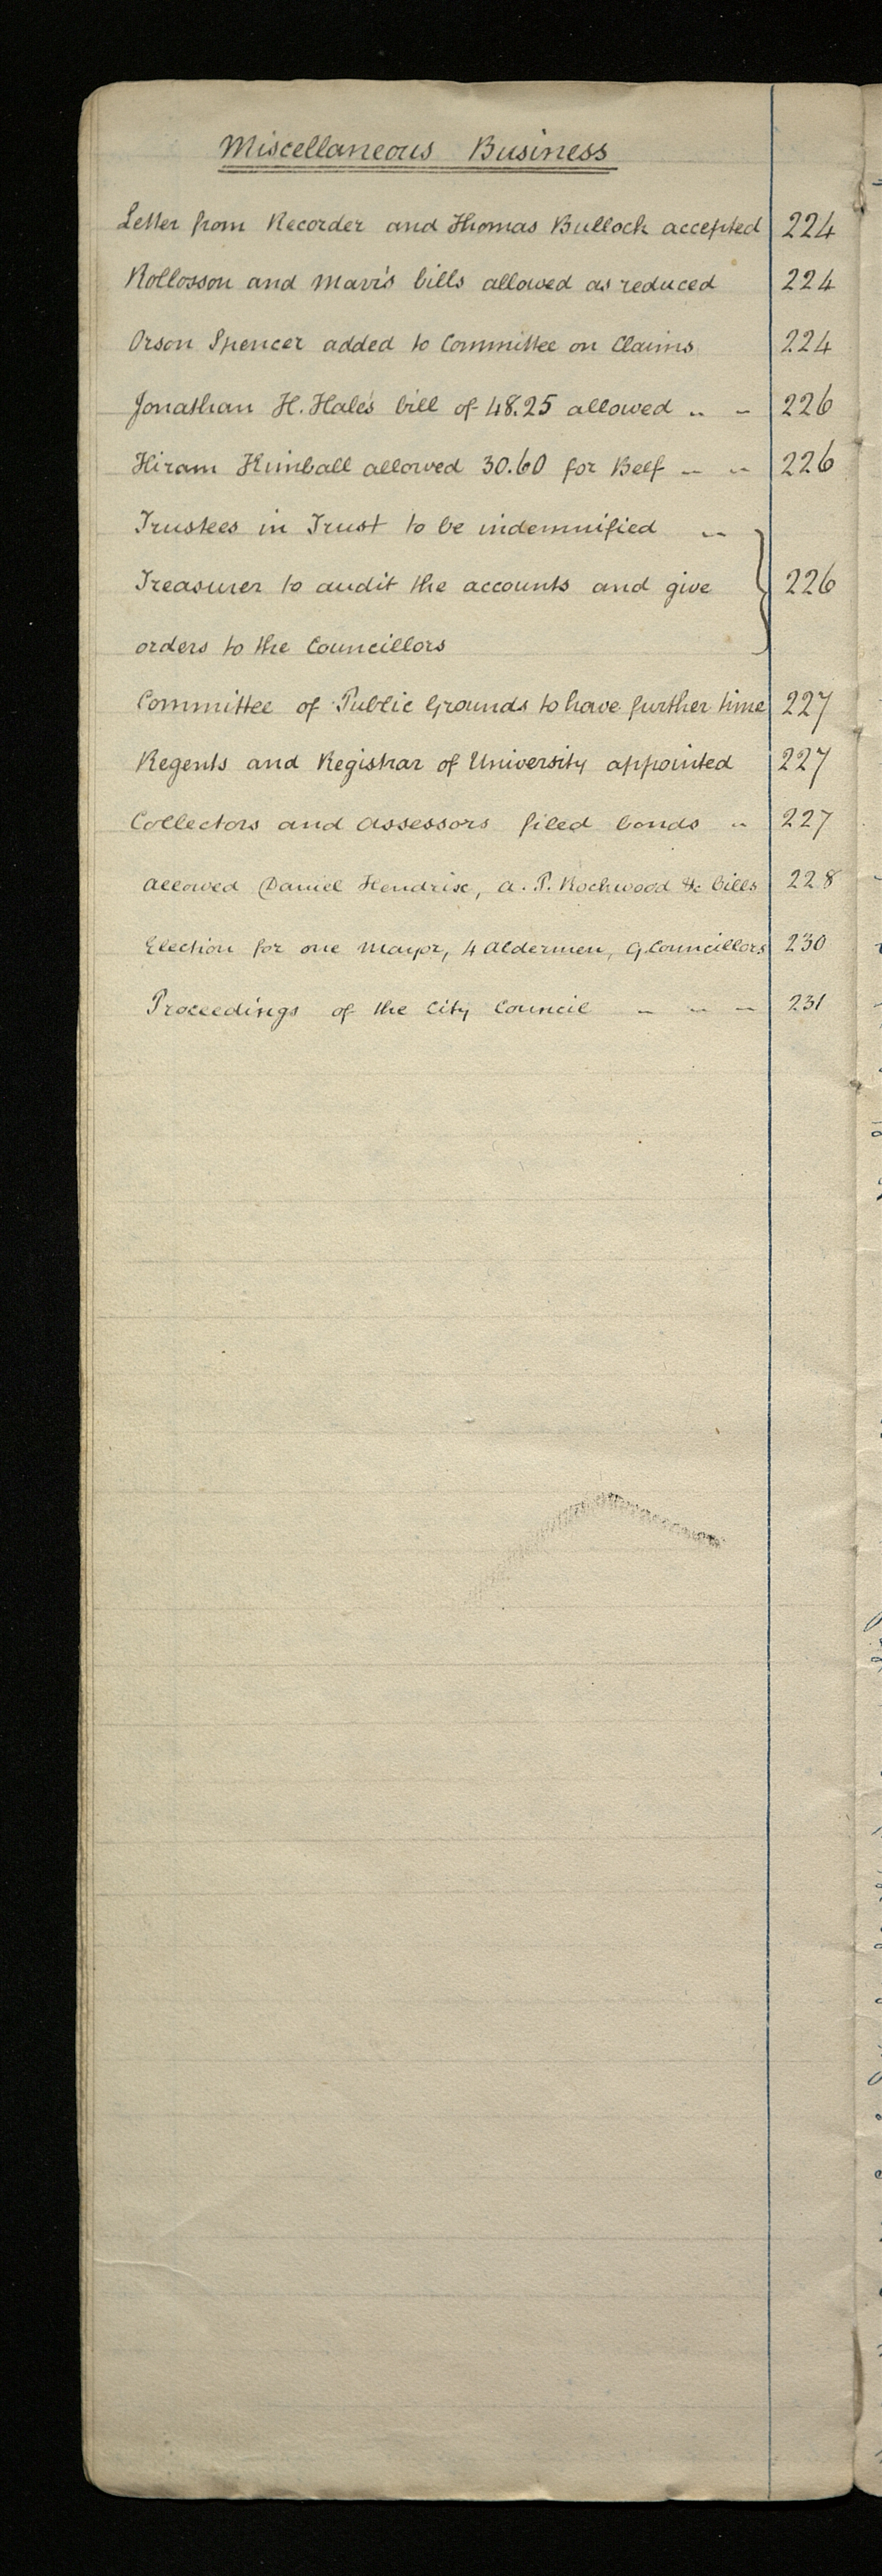 Miscellaneous Business
Letter from Recorder and Thomas Bullock accepted 224
Rollosson and Marr's bills allowed as reduced 224
Orson Spencer added to Committee on Claims 224
Jonathan H. Hale's bill of 48.25 allowed .. .. 226
Hiram Kimball allowed 30.60 for Beef .. .. 226
Trustees in Trust to be indemnified ..
Treasurer to audit the accounts and give 226
orders to the Councillors
Committee of Public Grounds to have further time 227
Regents and Registrar of University appointed 227
Collectors and assessors filed bonds .. 227
allowed Daniel Hendrix, A. P. Rockwood &c bills 228
Election for one Mayor, 4 Aldermen, 9 Councillors 230
Proceedings of the City Council .. .. .. 231